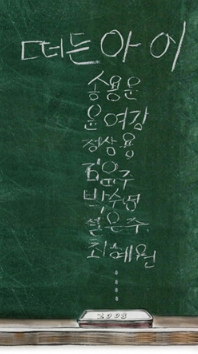 떠든 아이
송용운
윤여강
정삼용
김윤주
박수영
설은주
최혜원
2008